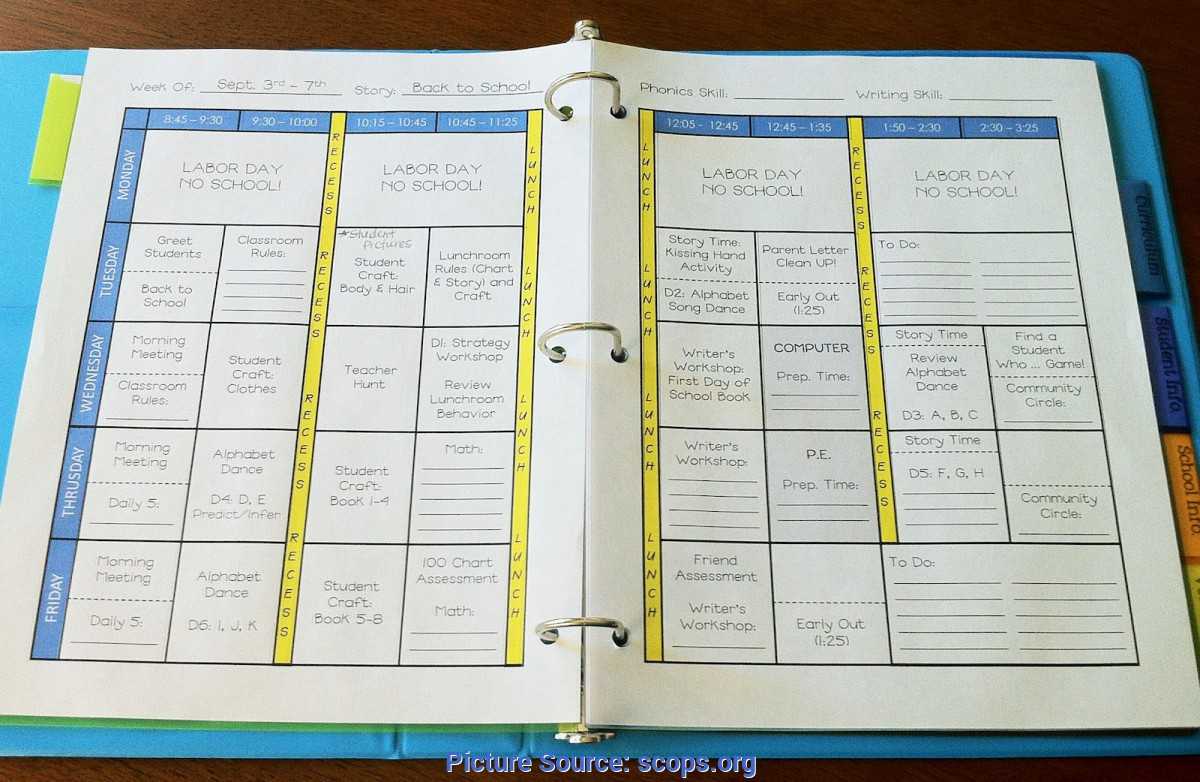 Week Of: Sept. 3rd - 7th Story: Back to School
8:45 - 9:30 9:30 - 10:00 10:15 - 10:45 10:45 - 11:25
RECESS
LUNCH
MONDAY
LABOR DAY
NO SCHOOL!
LABOR DAY
NO SCHOOL!
TUESDAY
Greet
Students
Back to
School
Classroom
Rules:
RECESS
*Student
Pictures
Student
Craft:
Body & Hair
Lunchroom
Rules (Chart
& Story) and
Craft
LUNCH
WEDNESDAY
Morning
Meeting
Classroom
Rules:
Student
Craft:
Clothes
RECESS
Teacher
Hunt
D1: Strategy
Workshop
Review
Lunchroom
Behavior
LUNCH
THRUSDAY
Morning
Meeting
Daily 5:
Alphabet
Dance
D4: D, E
Predict/Infer
Student
Craft:
Book 1-4
Math:
FRIDAY
Morning
Meeting
Daily 5:
Alphabet
Dance
D6: I, J, K
RECESS
Student
Craft:
Book 5-8
100 Chart
Assessment
Math:
LUNCH
Phonics Skill: Writing Skill:
12:05 - 12:45 12:45 - 1:35 1:50 - 2:30 2:30 - 3:25
LUNCH
RECESS
LABOR DAY
NO SCHOOL!
LABOR DAY
NO SCHOOL!
LUNCH
Story Time:
Kissing Hand
Activity
D2: Alphabet
Song Dance
Parent Letter
Clean UP!
Early Out
(1:25)
RECESS
To Do:
LUNCH
Writer's
Workshop:
First Day of
School Book
COMPUTER
Prep. Time:
Story Time
Review
Alphabet
Dance
D3: A, B, C
Find a
Student
Who ... Game!
Community
Circle:
Writer's
Workshop:
P.E.
Prep. Time:
RECESS
Story Time
D5: F, G, H
Community
Circle:
LUNCH
Friend
Assessment
Writer's
Workshop:
Early Out
(1:25)
To Do:
Curriculum
Student Info.
School Info.
Picture Source: scops.org